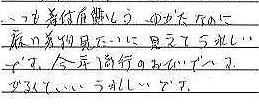 いつも着付有難う ゆかたなのに
麻の着物見たいに見えてうれしい
です。今年流行のおびです。
がるくていいうれしいです。